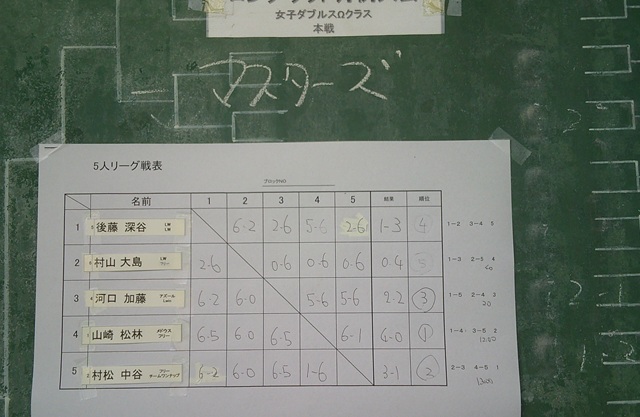 女子ダブルスΩクラス
本戦
マスターズ
5人リーグ戦表
名前 1 2 3 4 5 結果 順位
1 後藤 深谷 6-2 2-6 5-6 2-6 1-3 4 1-2 3-4 5
2 村山 大島 2-6 0-6 0-6 0-6 0-4 5 1-3 2-5 4
3 河口 加藤 6-2 6-0 5-6 5-6 2-2 3 1-5 2-4 3
4 山崎 松林 6-5 6-0 6-5 6-1 4-0 1 1-4 3-5 2
5 村松 中谷 6-2 6-0 6-5 1-6 3-1 2 2-3 4-5 1